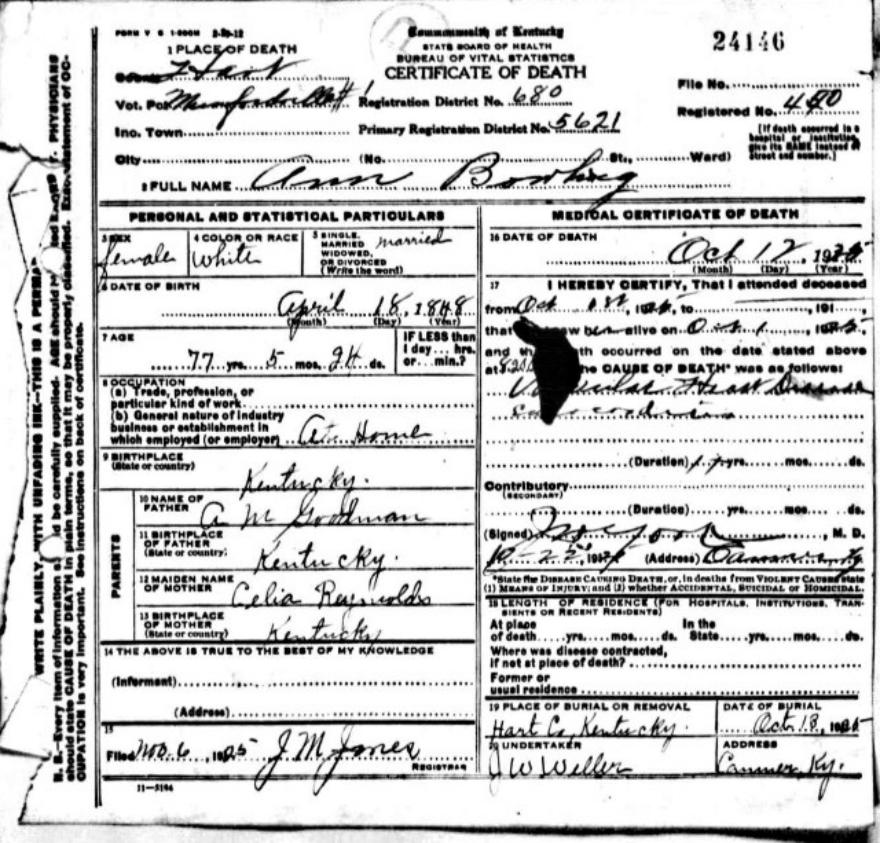 FORM V S 1-200M 2-20-12
Commonwealth of Kentucky
STATE BOARD OF HEALTH
BUREAU OF VITAL STATISTICS
CERTIFICATE OF DEATH
24146
1 PLACE OF DEATH
County Hart
Vot. Pct Munfordville #1
Inc. Town
City (No. St., Ward)
Registration District No. 680
Primary Registration District No. 5621
File No.
Registered No. 
[If death occurred in a hospital or institution, give its NAME instead of street and number.]
2 FULL NAME Ann Bowling
PERSONAL AND STATISTICAL PARTICULARS
3 SEX
female
4 COLOR OR RACE
White
5 SINGLE, MARRIED WIDOWED, OR DIVORCED (Write the word)
married
6 DATE OF BIRTH
April 18, 1848
(Month) (Day) (Year)
7 AGE
77 yrs. 5 mos. 24 ds.
IF LESS than 1 day hrs. or min.?
8 OCCUPATION
(a) Trade, profession, or
particular kind of work
(b) General nature of industry
business or establishment in
which employed (or employer) At Home
9 BIRTHPLACE
(State or country)
Kentucky.
PARENTS
10 NAME OF FATHER
A M Goodman
11 BIRTHPLACE OF FATHER
(State or country)
Kentucky.
12 MAIDEN NAME OF MOTHER
Celia Reynolds
13 BIRTHPLACE OF MOTHER
(State or country)
Kentucky
14 THE ABOVE IS TRUE TO THE BEST OF MY KNOWLEDGE
(Informant)
(Address)
15
Filed Nov. 6, 1925 J M Jones
REGISTRAR
11-3194
MEDICAL CERTIFICATE OF DEATH
16 DATE OF DEATH
Oct 12, 1925
(Month) (Day) (Year)
17 I HEREBY CERTIFY, That I attended deceased
from Oct 1st, to 191
that saw her alive on Oct 1
and th th occurred on the date stated above
at he CAUSE OF DEATH* was as follows:
Heart Disease
(Duration) yrs. mos. ds.
Contributory
(SECONDARY)
(Duration) yrs. mos. ds.
(Signed) , M. D.
(Address)
*State the DISEASE CAUSING DEATH, or, in deaths from VIOLENT CAUSES state
(1) MEANS OF INJURY; and (2) whether ACCIDENTAL, SUICIDAL or HOMICIDAL.
18 LENGTH OF RESIDENCE (FOR HOSPITALS, INSTITUTIONS, TRANSIENTS OR RECENT RESIDENTS)
At place of death yrs. mos. ds. In the State yrs. mos. ds.
Where was disease contracted,
if not at place of death?
Former or
usual residence
19 PLACE OF BURIAL OR REMOVAL
Hart Co, Kentucky.
DATE OF BURIAL
Oct. 13, 1925
20 UNDERTAKER
J W Weller
ADDRESS
Canmer, Ky.
WRITE PLAINLY, WITH UNFADING INK—THIS IS A PERMA
N. B.—Every item of information s d be carefully supplied. AGE should b ted EXACTLY. PHYSICIANS
should state CAUSE OF DEATH in plain terms, so that it may be properly classified. Exact statement of OC-
CUPATION is very important. See instructions on back of certificate.